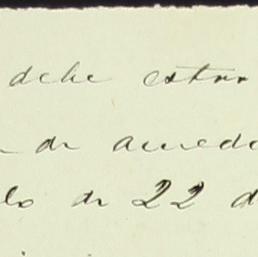 debe estar
de acuerdo
lo de 22 d